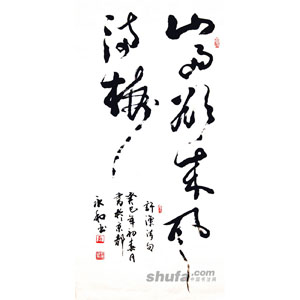 山雨欲来风
满楼
许浑诗句
癸巳年初春月
书于京都
永和书
shufa.com